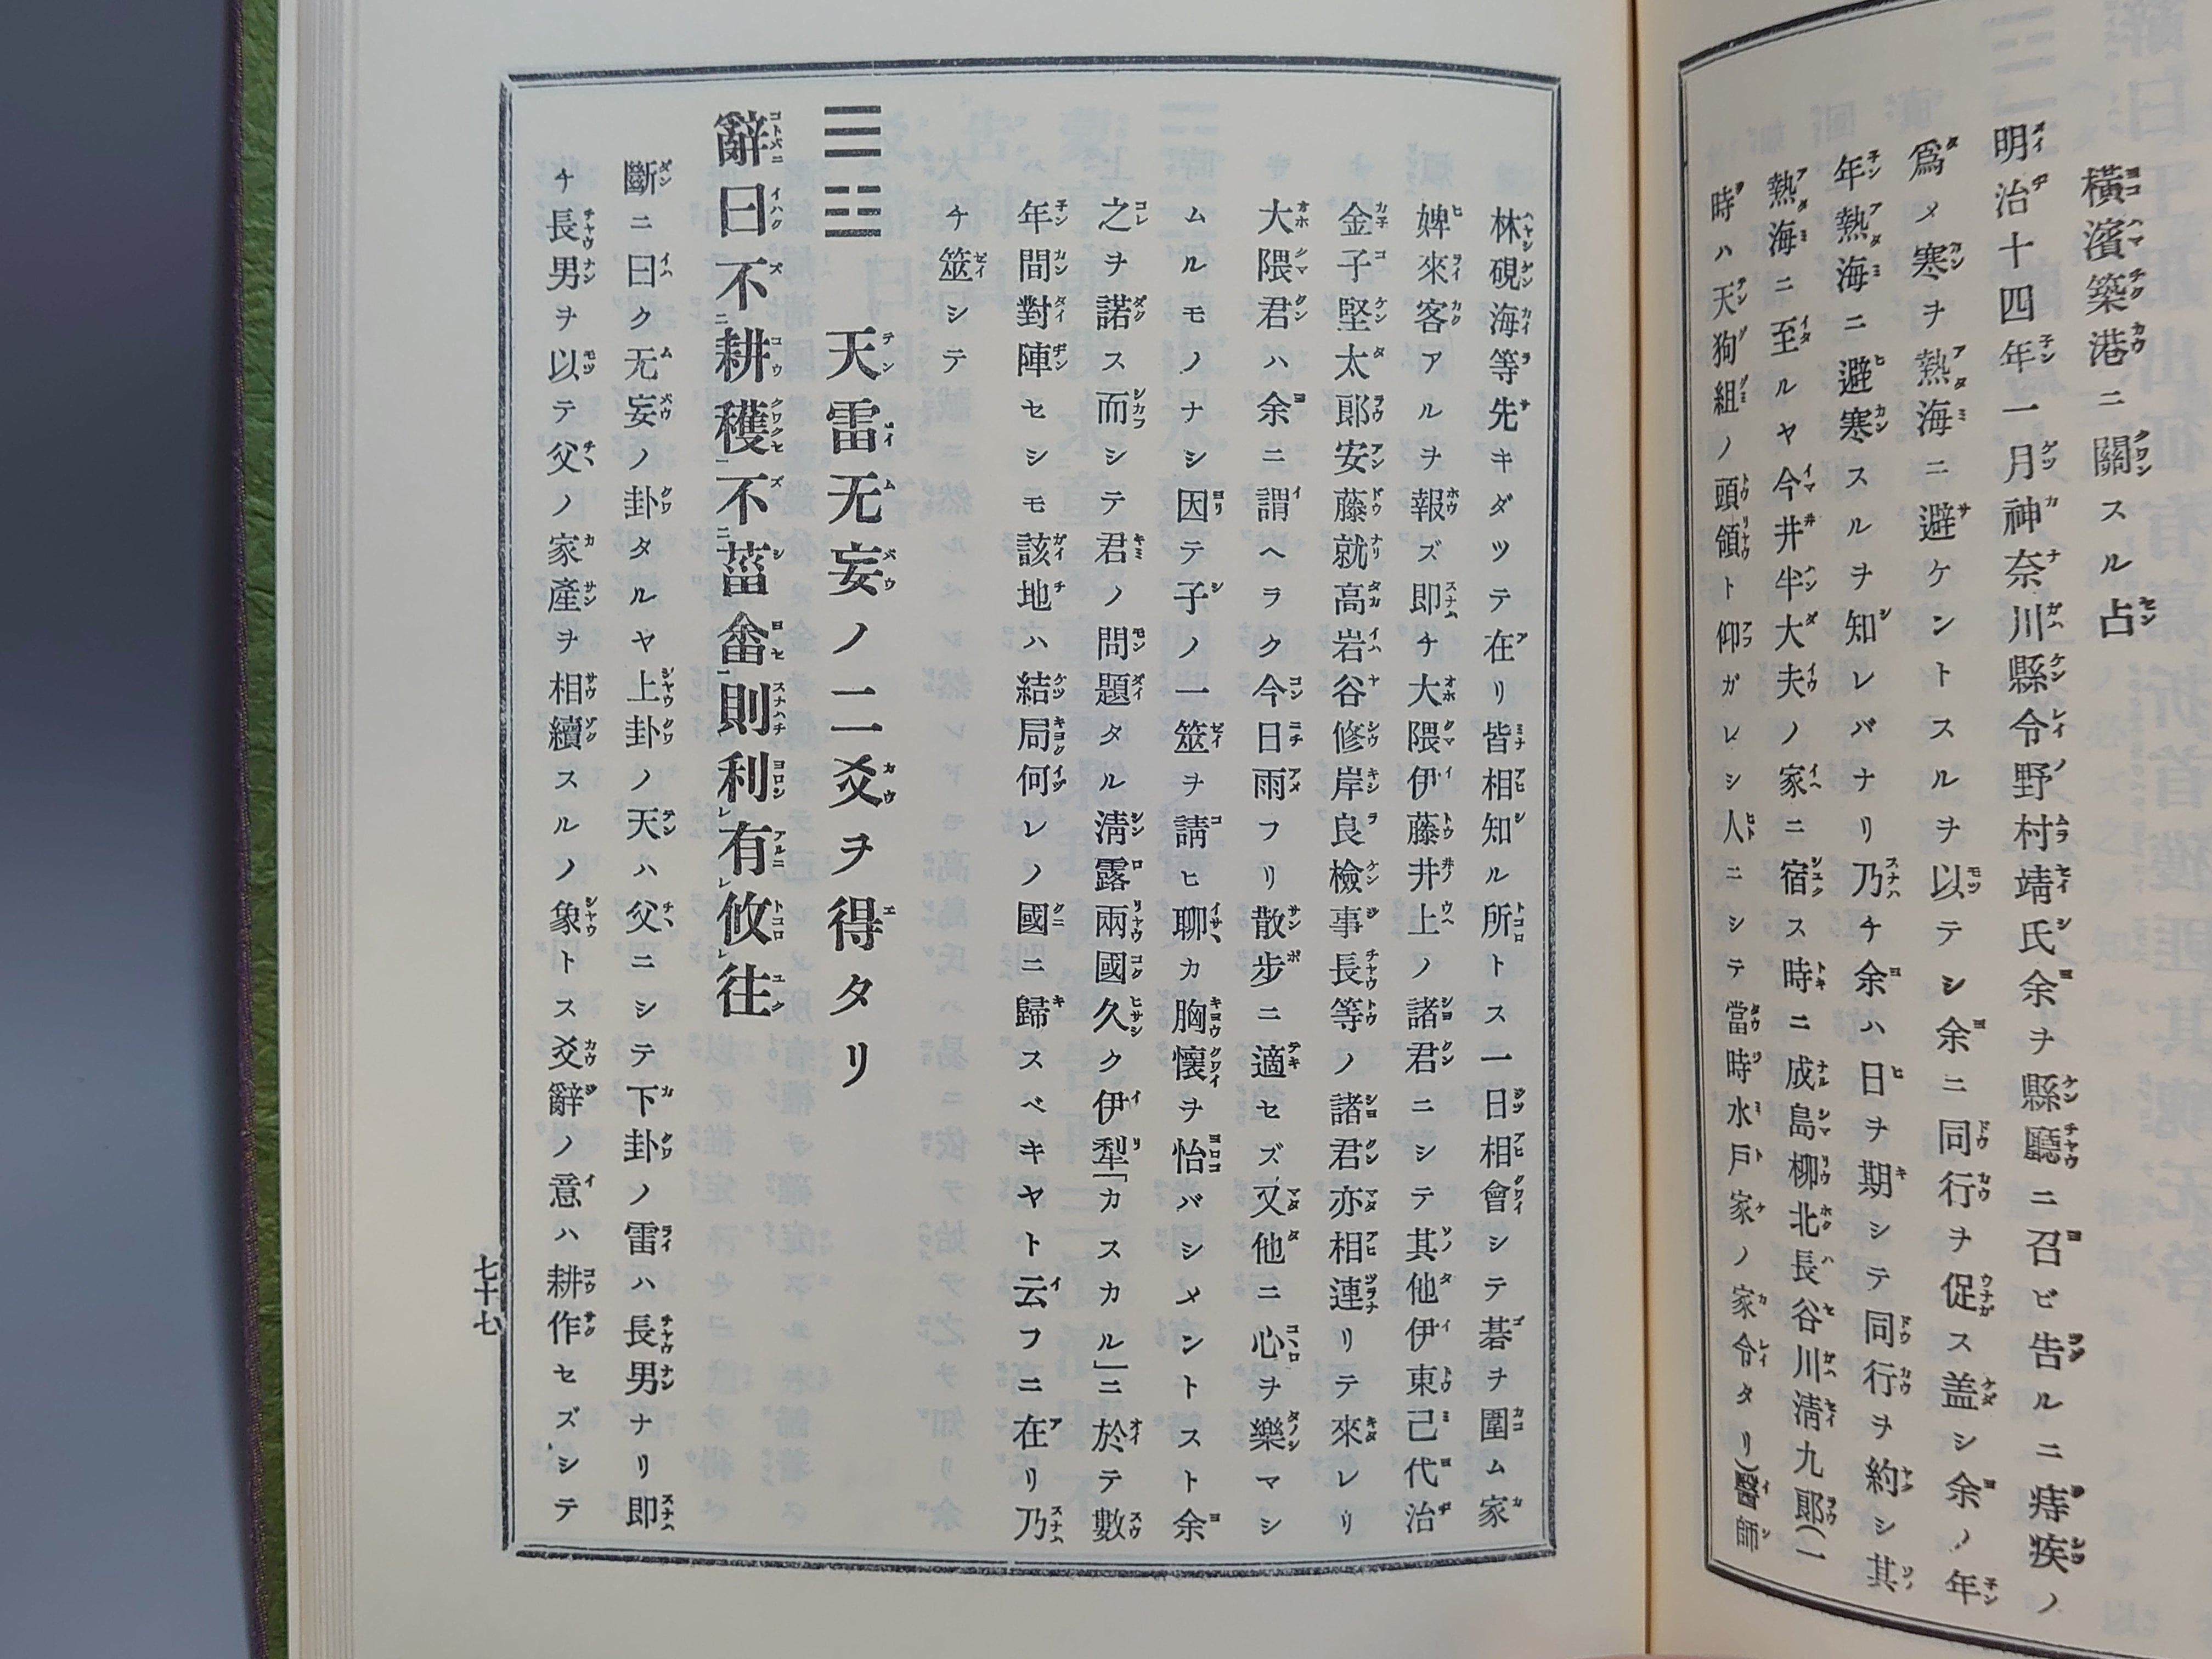 橫濱築港ニ關スル占
明治十四年一月神奈川縣令野村靖氏余ヲ縣廳ニ召ビ告ルニ痔疾ノ
爲メ寒ヲ熱海ニ避ケントスルヲ以テシ余ニ同行ヲ促ス盖シ余ノ年
年熱海ニ避寒スルヲ知レバナリ乃チ余ハ日ヲ期シテ同行ヲ約シ其
熱海ニ至ルヤ今井半大夫ノ家ニ宿ス時ニ成島柳北長谷川淸九郎(一
時ハ天狗組ノ頭領ト仰ガレシ人ニシテ當時水戶家ノ家令タリ)醫師
林硯海等先キダツテ在リ皆相知ル所トス一日相會シテ碁ヲ圍ム家
婢來客アルヲ報ズ即チ大隈伊藤井上ノ諸君ニシテ其他伊東己代治
金子堅太郎安藤就高岩谷修岸良檢事長等ノ諸君亦相連リテ來レリ
大隈君ハ余ニ謂ヘラク今日雨フリ散步ニ適セズ又他ニ心ヲ樂マシ
ムルモノナシ因テ子ノ一筮ヲ請ヒ聊カ胸懷ヲ怡バシメントスト余
之ヲ諾ス而シテ君ノ問題タル淸露兩國久ク伊犁「カスカル」ニ於テ數
年間對陣セシモ該地ハ結局何レノ國ニ歸スベキヤト云フニ在リ乃
チ筮シテ
䷘ 天雷无妄ノ二爻ヲ得タリ
辭曰不耕穫不菑畬則利有攸往
斷ニ曰ク无妄ノ卦タルヤ上卦ノ天ハ父ニシテ下卦ノ雷ハ長男ナリ即
チ長男ヲ以テ父ノ家產ヲ相續スルノ象トス爻辭ノ意ハ耕作セズシテ
七十七